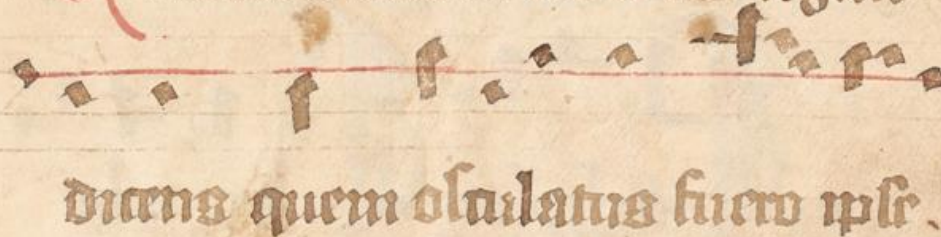 dicens quem osculatus fuero ipse